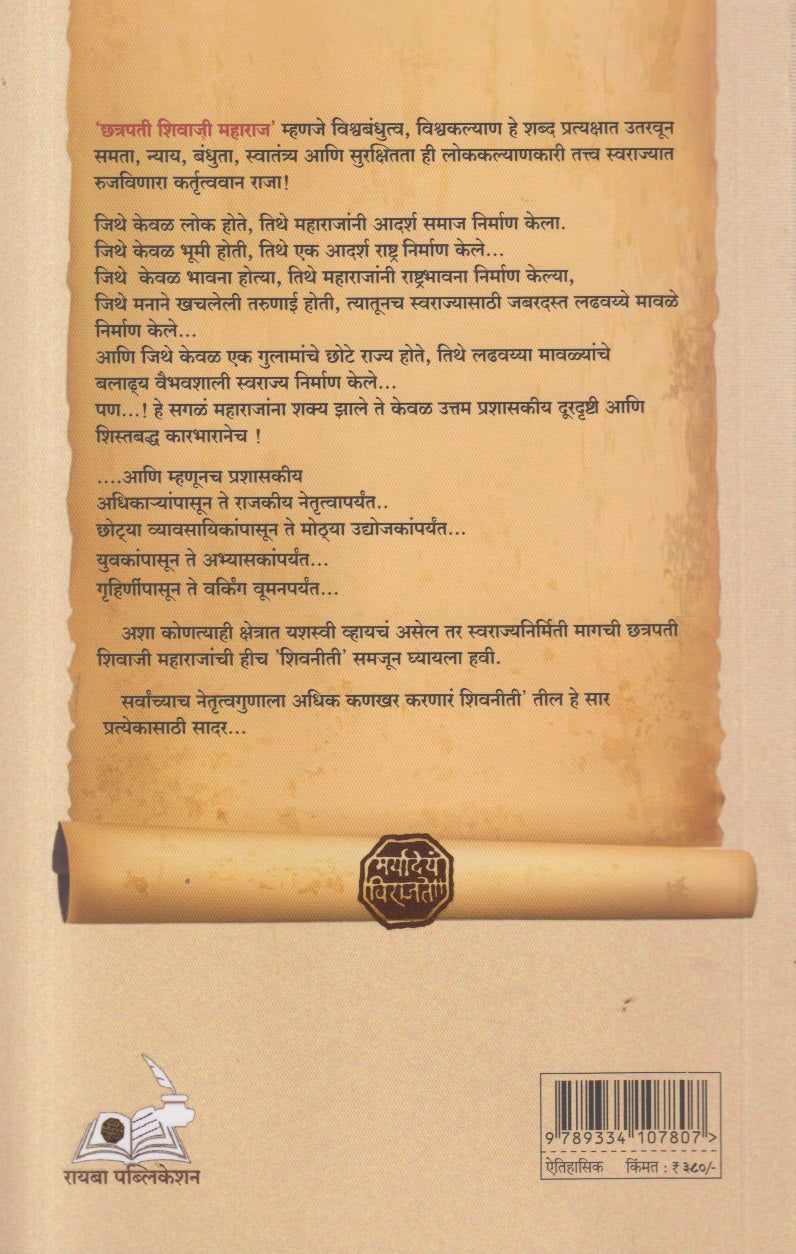 ‘छत्रपती शिवाजी महाराज’ म्हणजे विश्वबंधुत्व, विश्वकल्याण हे शब्द प्रत्यक्षात उतरवून
समता, न्याय, बंधुता, स्वातंत्र्य आणि सुरक्षितता ही लोककल्याणकारी तत्त्व स्वराज्यात
रुजविणारा कर्तृत्ववान राजा!
जिथे केवळ लोक होते, तिथे महाराजांनी आदर्श समाज निर्माण केला.
जिथे केवळ भूमी होती, तिथे एक आदर्श राष्ट्र निर्माण केले...
जिथे केवळ भावना होत्या, तिथे महाराजांनी राष्ट्रभावना निर्माण केल्या,
जिथे मनाने खचलेली तरुणाई होती, त्यातूनच स्वराज्यासाठी जबरदस्त लढवय्ये मावळे
निर्माण केले...
आणि जिथे केवळ एक गुलामांचे छोटे राज्य होते, तिथे लढवय्या मावळ्यांचे
बलाढ्य वैभवशाली स्वराज्य निर्माण केले...
पण...! हे सगळं महाराजांना शक्य झाले ते केवळ उत्तम प्रशासकीय दूरदृष्टी आणि
शिस्तबद्ध कारभारानेच !
....आणि म्हणूनच प्रशासकीय
अधिकाऱ्यांपासून ते राजकीय नेतृत्वापर्यंत..
छोट्या व्यावसायिकांपासून ते मोठ्या उद्योजकांपर्यंत...
युवकांपासून ते अभ्यासकांपर्यंत...
गृहिणींपासून ते वर्किंग वूमनपर्यंत...
अशा कोणत्याही क्षेत्रात यशस्वी व्हायचं असेल तर स्वराज्यनिर्मिती मागची छत्रपती
शिवाजी महाराजांची हीच 'शिवनीती' समजून घ्यायला हवी.
सर्वांच्याच नेतृत्वगुणाला अधिक कणखर करणारं शिवनीती' तील हे सार
प्रत्येकासाठी सादर...
मर्यादेयं
विराजते
रायबा पब्लिकेशन
9 789334 107807 >
ऐतिहासिक किंमत : ₹ ३८०/-